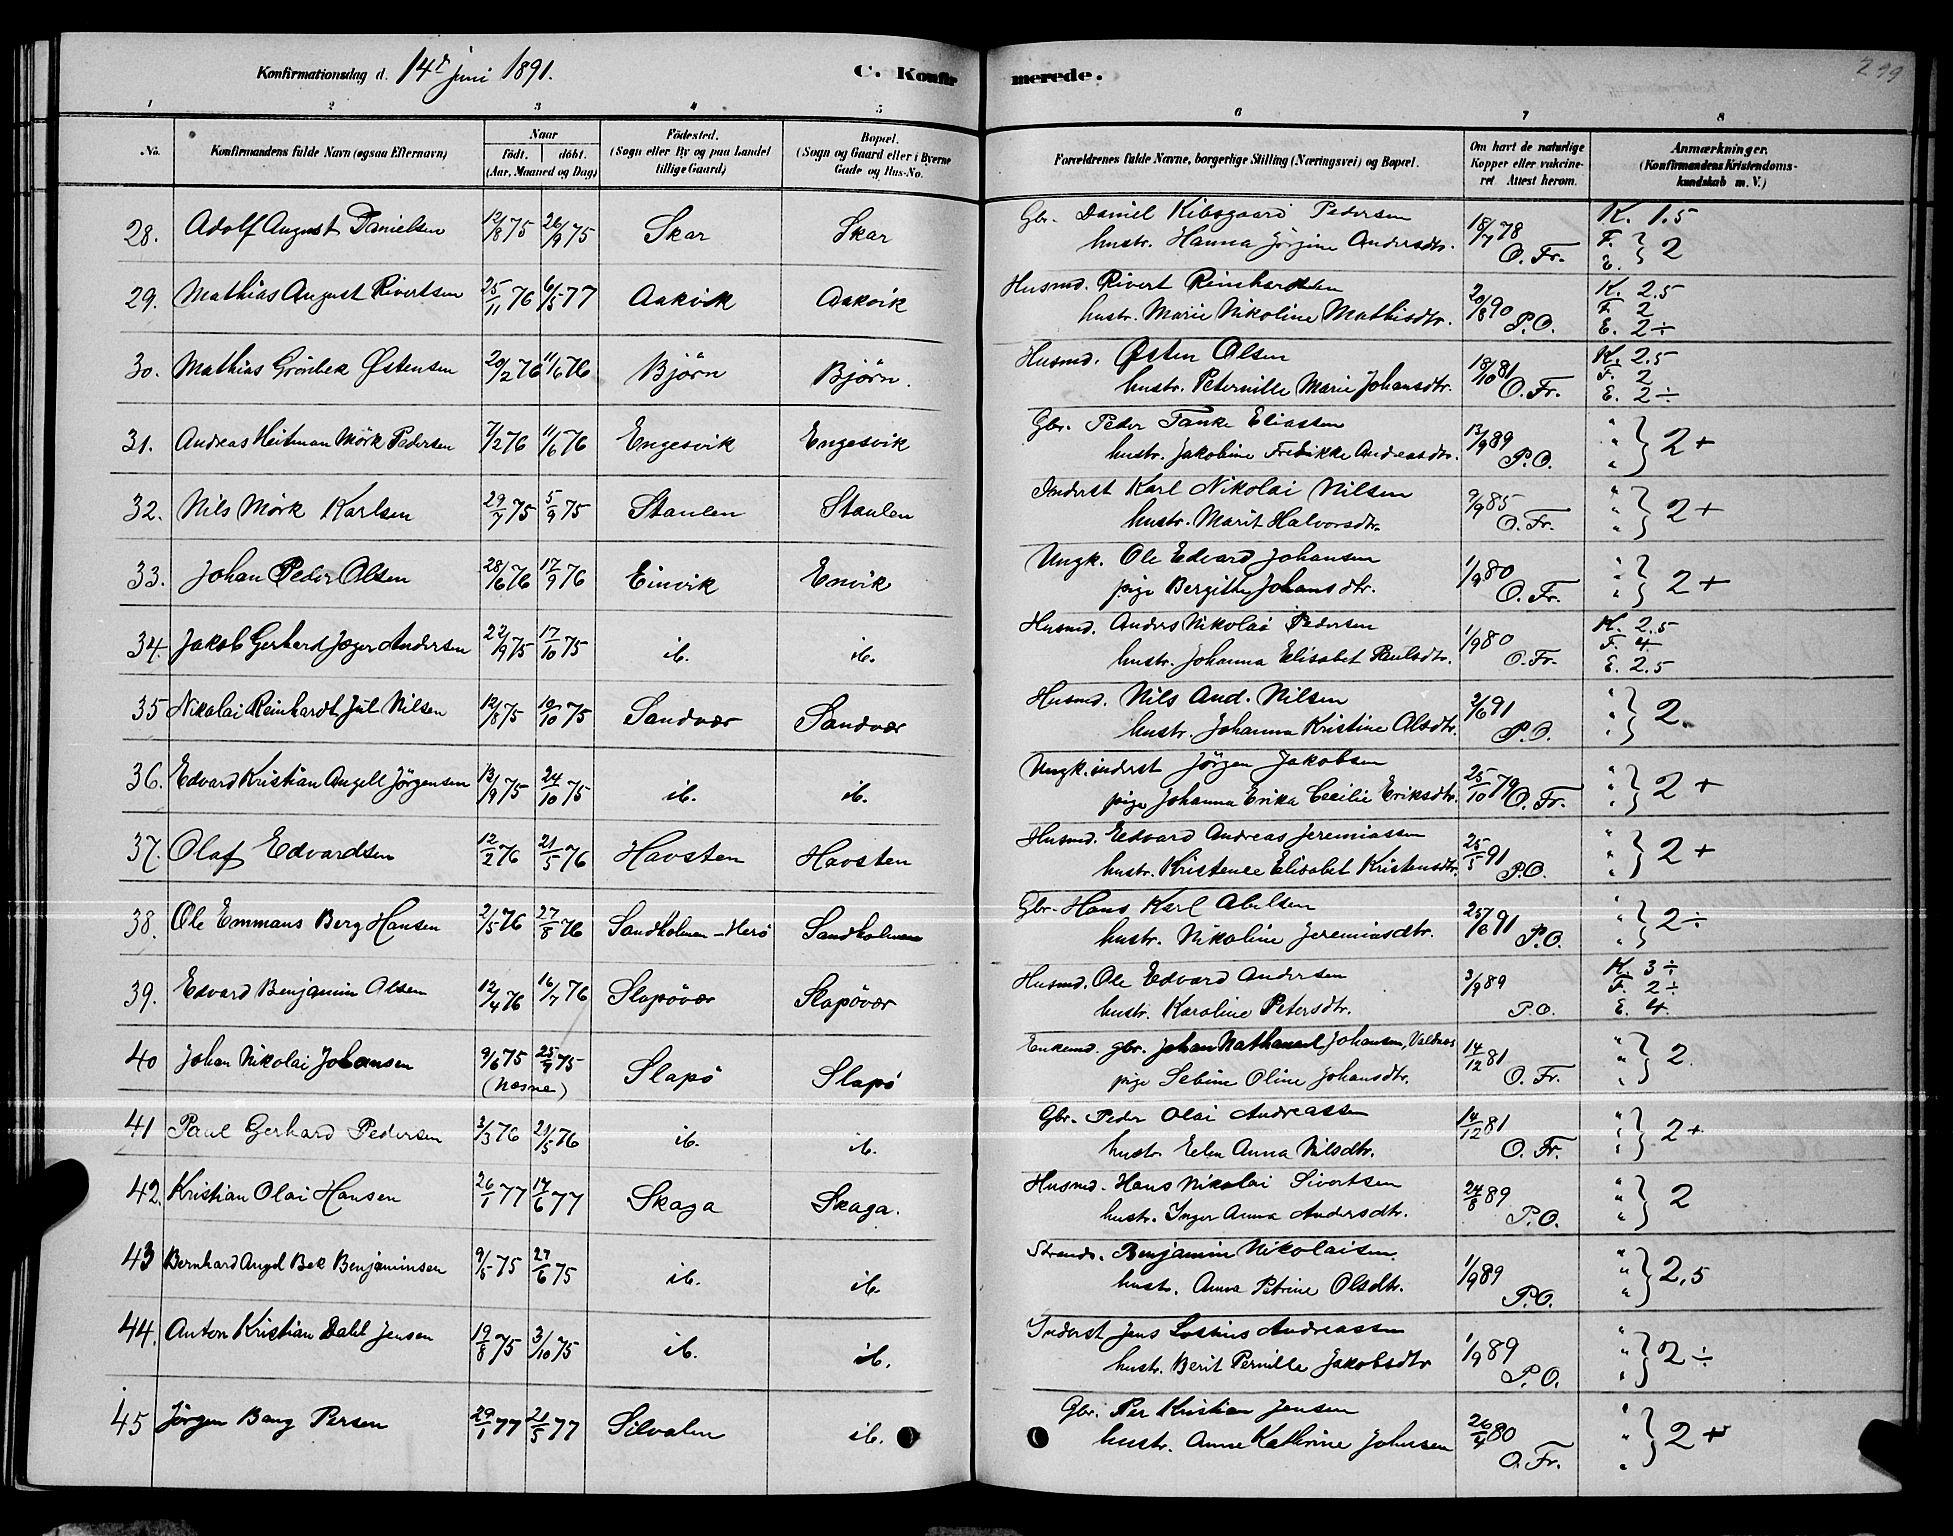 Konfirmationsdag d. 14de juni 1891. C. Konfirmerede. 299
1 2 3 4 5 6 7 8
No. Konfirmandens fulde Navn (ogsaa Efternavn) Naar födt. döbt. (Aar, Maaned og Dag) Födested. (Sogn eller By og paa Landet tillige Gaard) Bopæl. (Sogn og Gaard eller i Byerne Gade og Hus-No. Forældrenes fulde Navne, borgerlige Stilling (Næringsvei) og Bopæl. Om havt de naturlige Kopper eller vakcineret Attest herom. Anmærkninger. (Konfirmandens Kristendomskundskab m. V.)
28. Adolf August Danielsen 12/8 75 26/9 75 Skar Skar Gbr. Daniel Kibsgaard Pedersen 18/7 78 K. 1.5
hustr. Hanna Jörgine Andersdtr. O. Fr. F. E. } 2
29. Mathias August Rivertsen 25/11 76 6/5 77 Aakvik Aakvik Husmd. Rivert Reinhardtsen 20/8 90 K. 2.5
hustr. Marie Nikoline Mathisdtr. P.O. F. 2
E. 2 ÷
30. Mathias Grönbek Østensen 20/2 76 11/6 76 Björn Björn. Husmd. Østen Olsen 18/10 81 K. 2.5
hustr. Peternille Marie Johansdtr. O. Fr. F. 2
E. 2 ÷
31. Andreas Heitman Mörk Pedersen 7/2 76 11/6 76 Engesvik Engesvik Gbr. Peder Tanke Eliassen 13/9 89 " " " } 2 +
hustr. Jakobine Fredrikke Andreasdtr. P.O.
32. Nils Mörk Karlsen 29/7 75 5/9 75 Staulen Staulen Inderst Karl Nikolai Nilsen 9/9 85 " " " } 2 +
hustr. Marit Halvorsdtr. O. Fr.
33. Johan Peder Olsen 28/6 76 17/9 76 Einvik Envik Ungk. Ole Edvard Johansen 1/9 80 " " " } 2 +
pige Bergithe Johansdtr. O. Fr.
34. Jakob Gerhard Jæger Andersen 22/9 75 17/10 75 ib. ib. Husmd. Anders Nikolai Pedersen 1/9 80 K. 2.5
hustr. Johanna Elisabet Paulsdtr. O. Fr. F. 4
E. 2.5
35 Nikolai Reinhardt Jul Nilsen 12/8 75 10/10 75 Sandvær Sandvær Husmd. Nils And. Nilsen 2/6 91 " " " } 2.
hustr. Johanna Kristine Olsdtr. P.O.
36. Edvard Kristian Angell Jörgensen 13/9 75 24/10 75 ib. ib. Ungk. inderst Jörgen Jakobsen 25/10 79 " " " } 2 +
pige Johanna Erika Cecilie Eriksdtr. O. Fr.
37. Olaf Edvardsen 12/2 76 21/5 76 Havsten Havsten Husmd. Edvard Andreas Jeremiassen 25/5 91 " " " } 2 +
hustr. Kristence Elisabet Kristensdtr. P.O.
38. Ole Emmaus Berg Hansen 2/5 76 27/8 76 Sandholmen - Herö Sandholmen Gbr. Hans Karl Abelsen 91 " " " } 2 ÷
hustr. Nikoline Jeremiasdtr. P.O.
39. Edvard Benjamin Olsen 12/4 76 16/7 76 Slapövær Slapövær Husmd. Ole Edvard Andersen 3/9 89 K. 3 ÷
hustr. Karoline Petersdtr. P.O. F. 2 ÷
E. 4.
40 Johan Nikolai Johansen 9/6 75 25/7 75 Slapö Slapö Enkemd. gbr. Johan Nathanael Johansen, Valdnes 14/12 81 " " " } 2.
(Nesne) pige Sebine Oline Johansdtr. O. Fr.
41 Paul Gerhard Pedersen 3/3 76 21/5 76 ib. ib. Gbr. Peder Olai Andreassen 14/12 81 " " " } 2 +
hustr. Elen Anna Nilsdtr. O. Fr.
42. Kristian Olai Hansen 26/1 77 17/6 77 Skaga Skaga. Husmd. Hans Nikolai Sivertsen 24/8 89 " " " } 2
hustr. Inger Anna Andersdtr. P.O.
43 Bernhard Angel Bek Benjaminsen 9/5 75 27/6 75 ib. ib. Strands. Benjamin Nikolaisen 1/9 89 " " " } 2,5
hustr. Anna Petrine Olsdtr. P.O.
44. Anton Kristian Dahl Jensen 19/8 75 3/10 75 ib. ib. Inderst Jens Andreassen 1/9 89 " " " } 2 ÷
hustr. Berit Pernille Jakobsdtr P.O.
45 Jörgen Bang Persen 29/1 77 21/5 77 Silvalen ib. Gbr. Per Kristian Jensen 26/4 80 " " " } 2 +
hustr. Anne Kathrine Johnsen O. Fr.